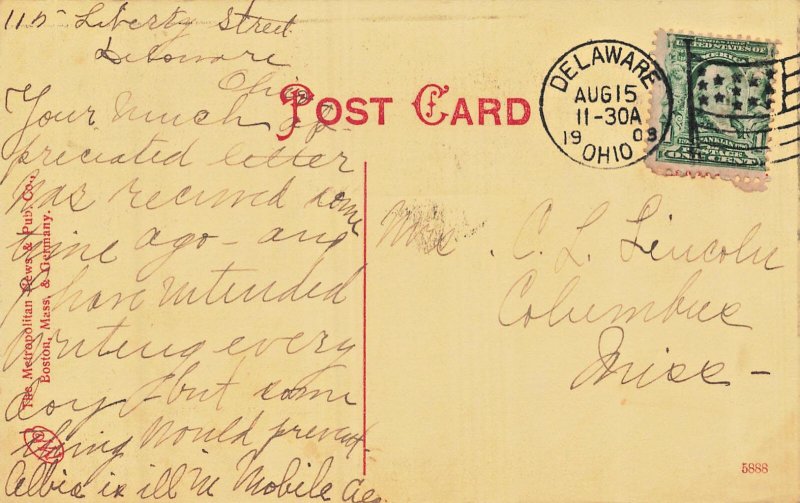 115 Liberty Street
Delaware
Ohio
POST CARD
Your much ap-
preciated letter
was received some
time ago - and
I have intended
writing every
day - but some
thing would prevent -
Albie is ill in Mobile Ala
The Metropolitan News & Pub. Co.,
Boston, Mass. & Germany.
DELAWARE
AUG 15
11-30A
1908
OHIO
UNITED STATES OF
AMERICA
FRANKLIN
POSTAGE
ONE CENT
Mrs. C. L. Lincoln
Columbus
Miss -
5888